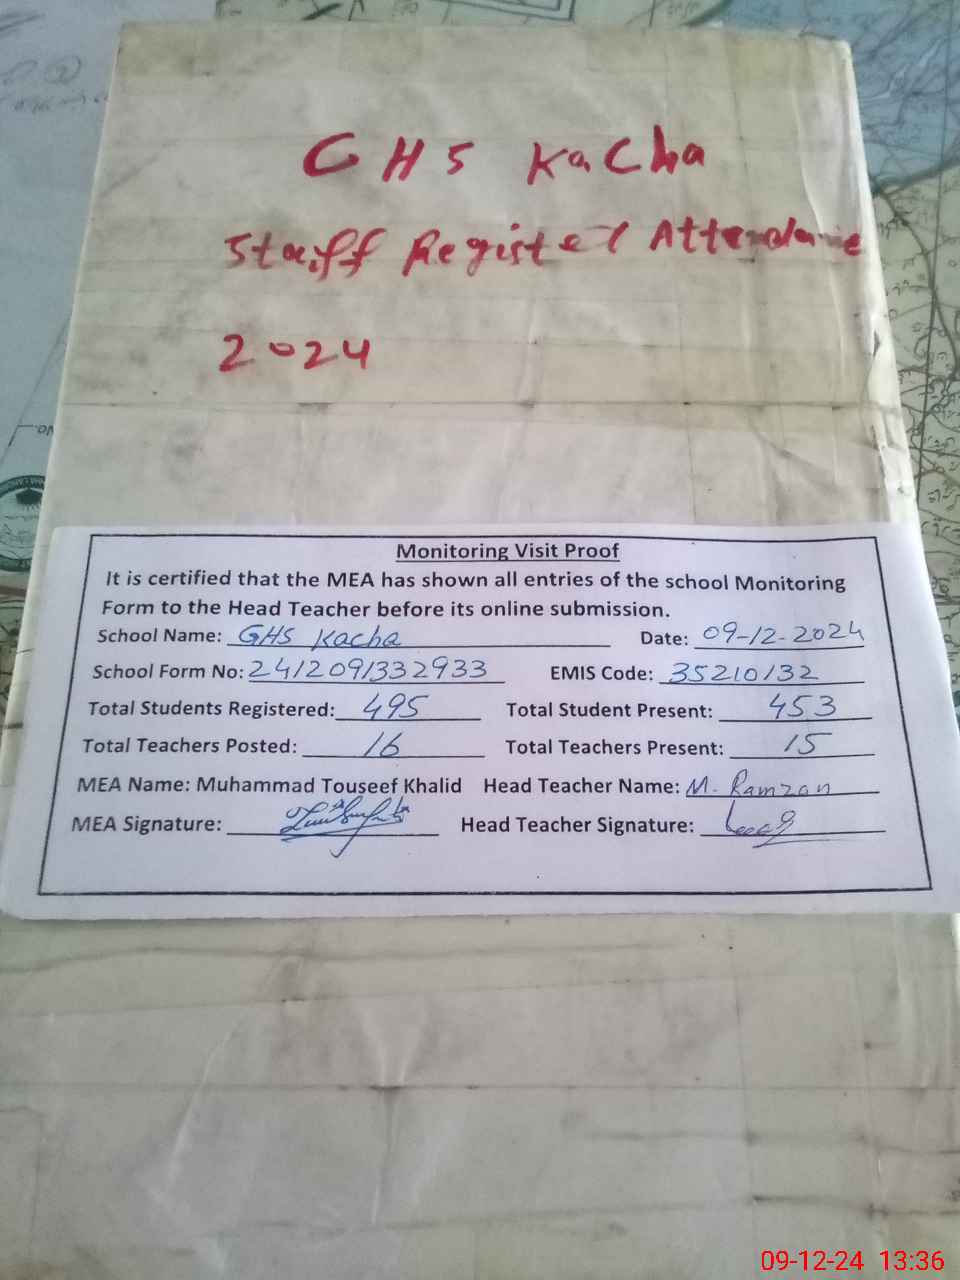 GHS Kacha
Staff Register Attendance
2024
Monitoring Visit Proof
It is certified that the MEA has shown all entries of the school Monitoring
Form to the Head Teacher before its online submission.
School Name: GHS Kacha Date: 09-12-2024
School Form No: 2412091332933 EMIS Code: 35210132
Total Students Registered: 495 Total Student Present: 453
Total Teachers Posted: 16 Total Teachers Present: 15
MEA Name: Muhammad Touseef Khalid Head Teacher Name: M. Ramzan
MEA Signature: Head Teacher Signature:
09-12-24 13:36